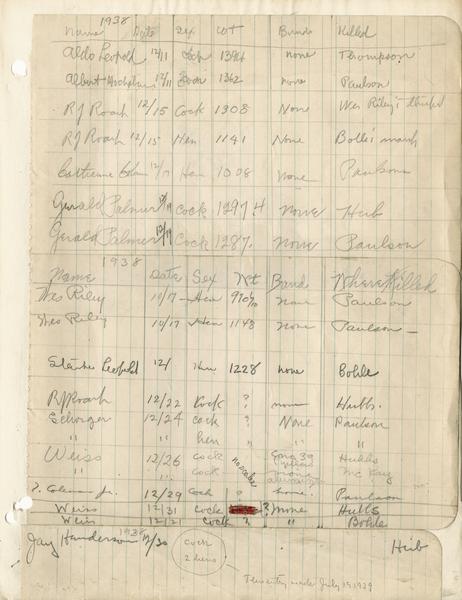 1938
Name Date Sex Wt Bands Killed
Aldo Leopold 12/11 Cock 1394 none Thompson
Albert Hochbaum 12/11 Cock 1362 none Paulson
RJ Roark 12/15 Cock 1308 None Wes Riley's
RJ Roark 12/15 Hen 1141 None Bohle's marsh
Catherine 12/17 Hen 1008 None Paulson
Gerald Palmer Cock 1297.4 None Hub
Gerald Palmer 12/19 Cock 1287. None Paulson
1938
Name Date Sex Wt Band Where Killed
Wes Riley 10/17 Hen none Paulson
Wes Riley 10/17 Hen 1148 none Paulson
Starker Leopold 12/ Hen 1228 none Bohle
RJ Roark 12/22 Cock ? none Hubbs.
Schorger 12/24 Cock ? None Paulson
" hen " " "
Weiss 12/26 cock no scales Hubbs
" " cock none McKay
Coleman Jr. 12/29 Cock ? none. Paulson
Weiss 12/31 cock ? none Hubbs
Weiss 12/21 cock ? " Bohle
Jay Handerson 1938 12/30 cock 2 hens Hub
This entry made July 19, 1939